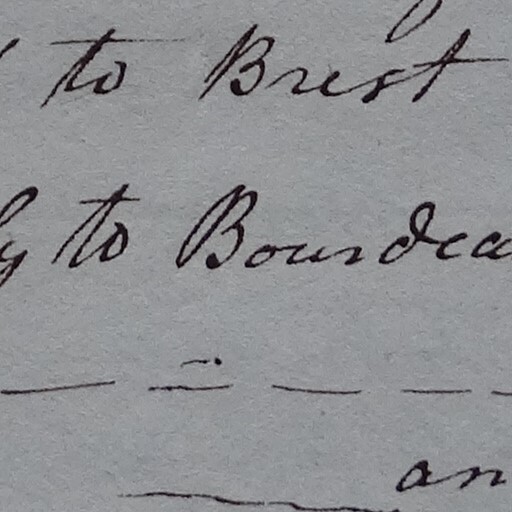 to Brest
to Bourdea
an